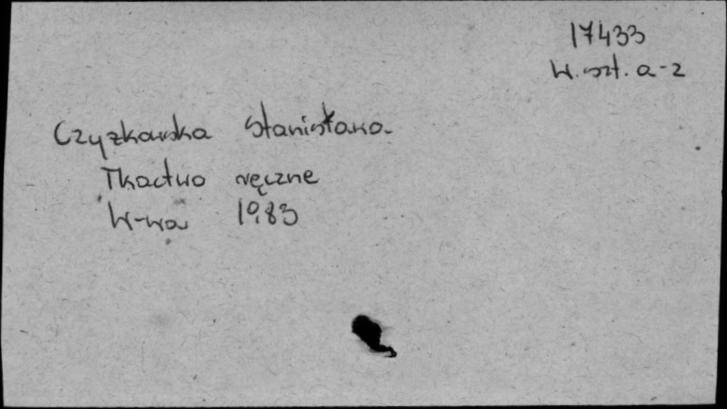 17433
W. szt. a-z
Czyżkowska Stanisława
Tkactwo ręczne
W-wa 1983